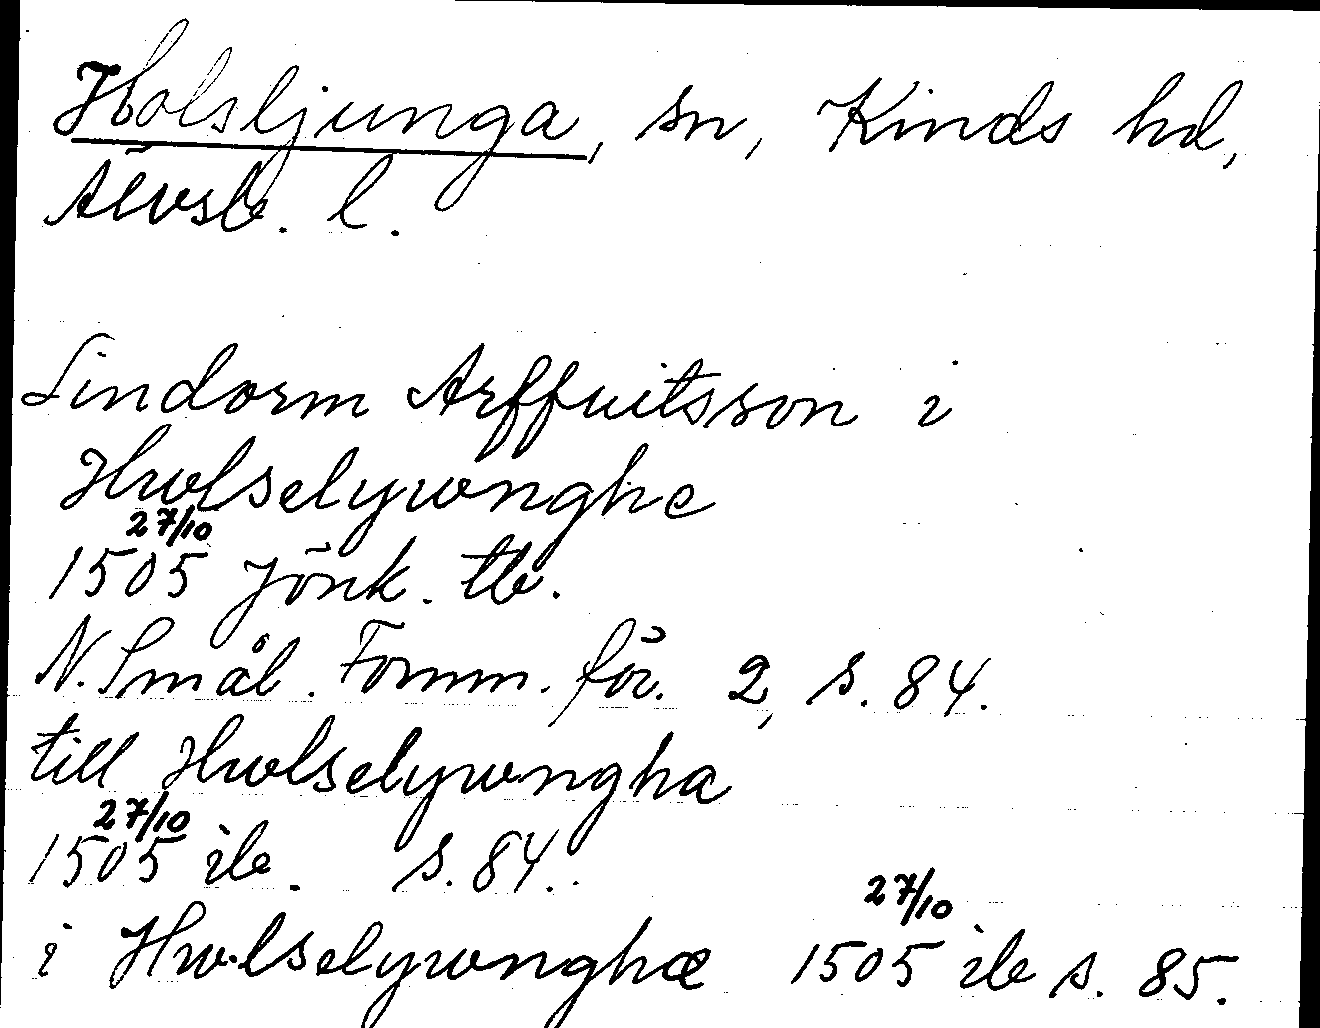 Holsljunga, sn, Kinds hd,
Älvsb. l.
Lindorm Arffuitsson i
Hwlselywnghe
27/10
1505 Jönk. tb.
N. Smål. Fornm. för. 2, s. 84.
till Hwlselywngha
27/10
1505 ib. s. 84.
27/10
i Hwlselywnghæ 1505 ib s. 85.